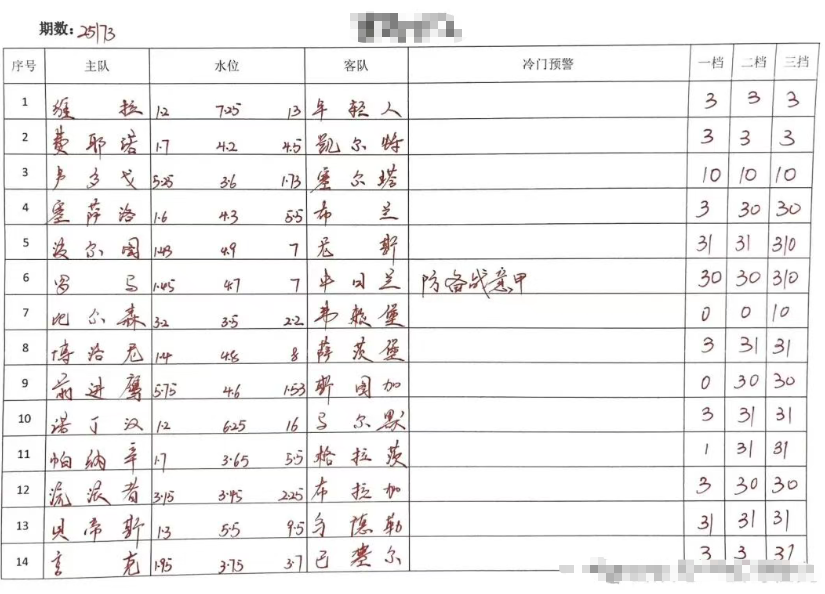 期数: 25173
序号 主队 水位 客队 冷门预警 一档 二档 三挡
1 维拉 1.2 7.25 13 年轻人 3 3 3
2 费耶诺 1.7 4.2 4.5 凯尔特 3 3 3
3 卢多戈 5.25 3.6 1.73 塞尔塔 10 10 10
4 塞萨洛 1.6 4.3 5.5 布兰 3 30 30
5 波尔图 1.43 4.9 7 尼斯 31 31 310
6 罗马 1.45 4.7 7 中日兰 防备战意甲 30 30 310
7 比尔森 3.2 3.5 2.2 弗赖堡 0 0 10
8 博洛尼 1.4 4.8 8 萨茨堡 3 31 31
9 前进鹰 5.75 4.6 1.53 斯图加 0 30 30
10 诺丁汉 1.2 6.25 16 马尔默 3 31 31
11 帕纳辛 1.7 3.65 5.5 格拉茨 1 31 31
12 流浪者 3.15 3.45 2.25 布拉加 3 30 30
13 贝帝斯 1.3 5.5 9.5 乌德勒 31 31 31
14 亨克 1.95 3.75 3.7 巴塞尔 3 3 31